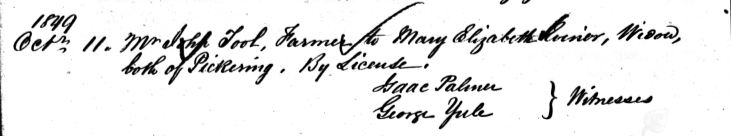 1849
Octr 11. Mr John Tool, Farmer to Mary Elizabeth, Widow,
both of Pickering. By License.
Isaac Palmer
George Yule } Witnesses